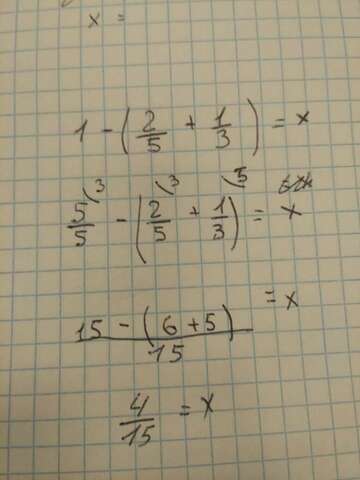 x =
1 - (2/5 + 1/3) = x
5/5 (3 - (2/5 (3 + 1/3 (5) = x
15 - (6 + 5) / 15 = x
4/15 = x